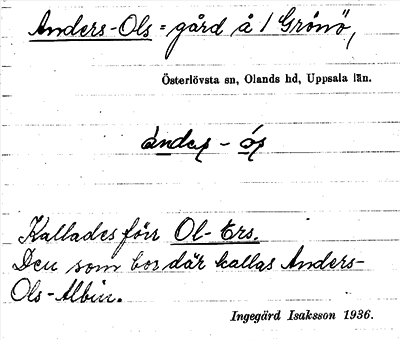 Anders-Ols = gård å 1 Grönö,
Österlövsta sn, Olands hd, Uppsala län.
Kallades förr Ol-Ers.
Den som bor där kallas Anders-
Ols-Albin.
Ingegärd Isaksson 1936.